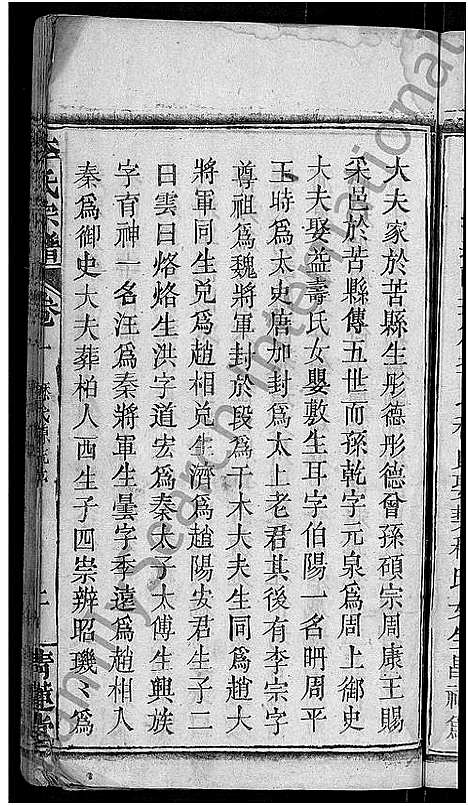 大夫家於苦縣生彤德彤德曾孫碩宗周康王賜
采邑於苦縣傳五世而孫乾字元泉爲周上御史
大夫娶益壽氏女嬰敷生耳字伯陽一名聃周平
王時爲太史唐加封爲太上老君其後有李宗字
尊祖爲魏將軍封於段爲干木大夫生同爲趙大
將軍同生兌爲趙相兌生濟爲趙陽安君生子二
曰雲曰烙烙生洪字道宏爲秦太子太傅生興族
字育神一名汪爲秦將軍生曇字季遠爲趙相入
秦爲御史大夫葬柏人西生子四崇辨昭璣璣爲
李氏宗譜
卷一
FamilySearch International